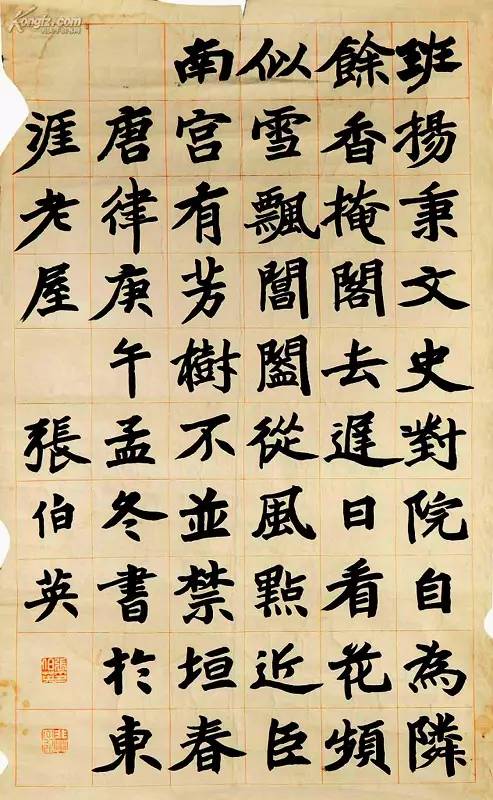 班揚秉文史對院自為隣
餘香掩閣去遲日看花頻
似雪飄閶闔從風點近臣
南宮有芳樹不並禁垣春
唐律庚午孟冬書於東
涯老屋 張伯英
張伯英
Kongfz.com